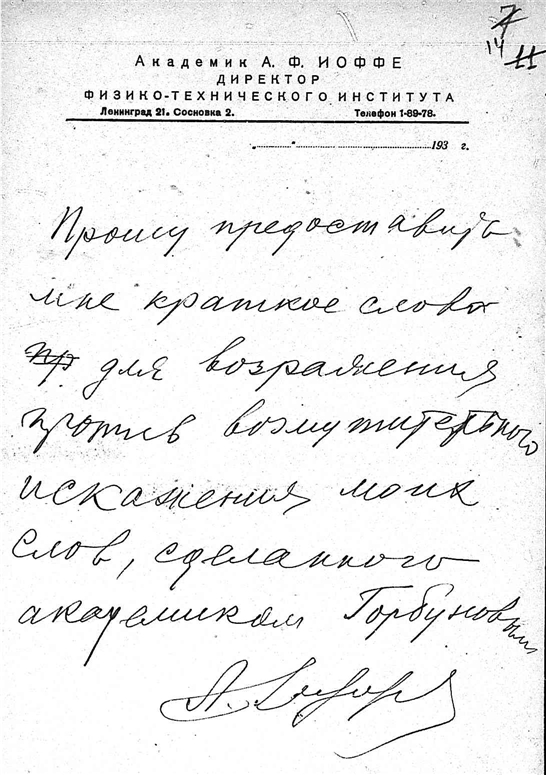 7
14 11
Академик А. Ф. ИОФФЕ
ДИРЕКТОР
ФИЗИКО-ТЕХНИЧЕСКОГО ИНСТИТУТА
Ленинград 21. Сосновка 2. Телефон 1-89-78.
193 г.
Прошу предоставить
мне краткое слово
пр для возражения
против возмутительного
искажения моих
слов, сделанного
академиком Горбуновым
А.